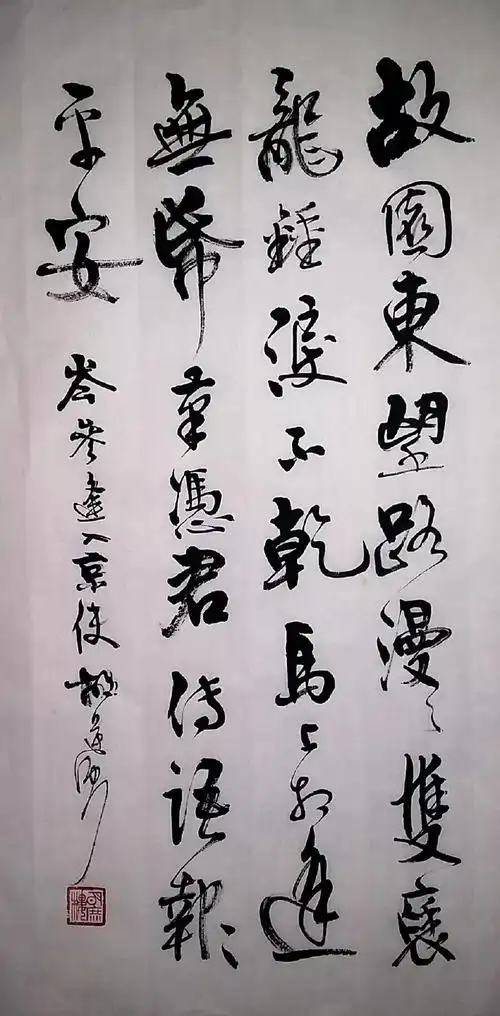 故園東望路漫〻雙褎
龍鍾淚不乾馬上相逢
無帋筆憑君傳語報
平安 岑參逢入京使